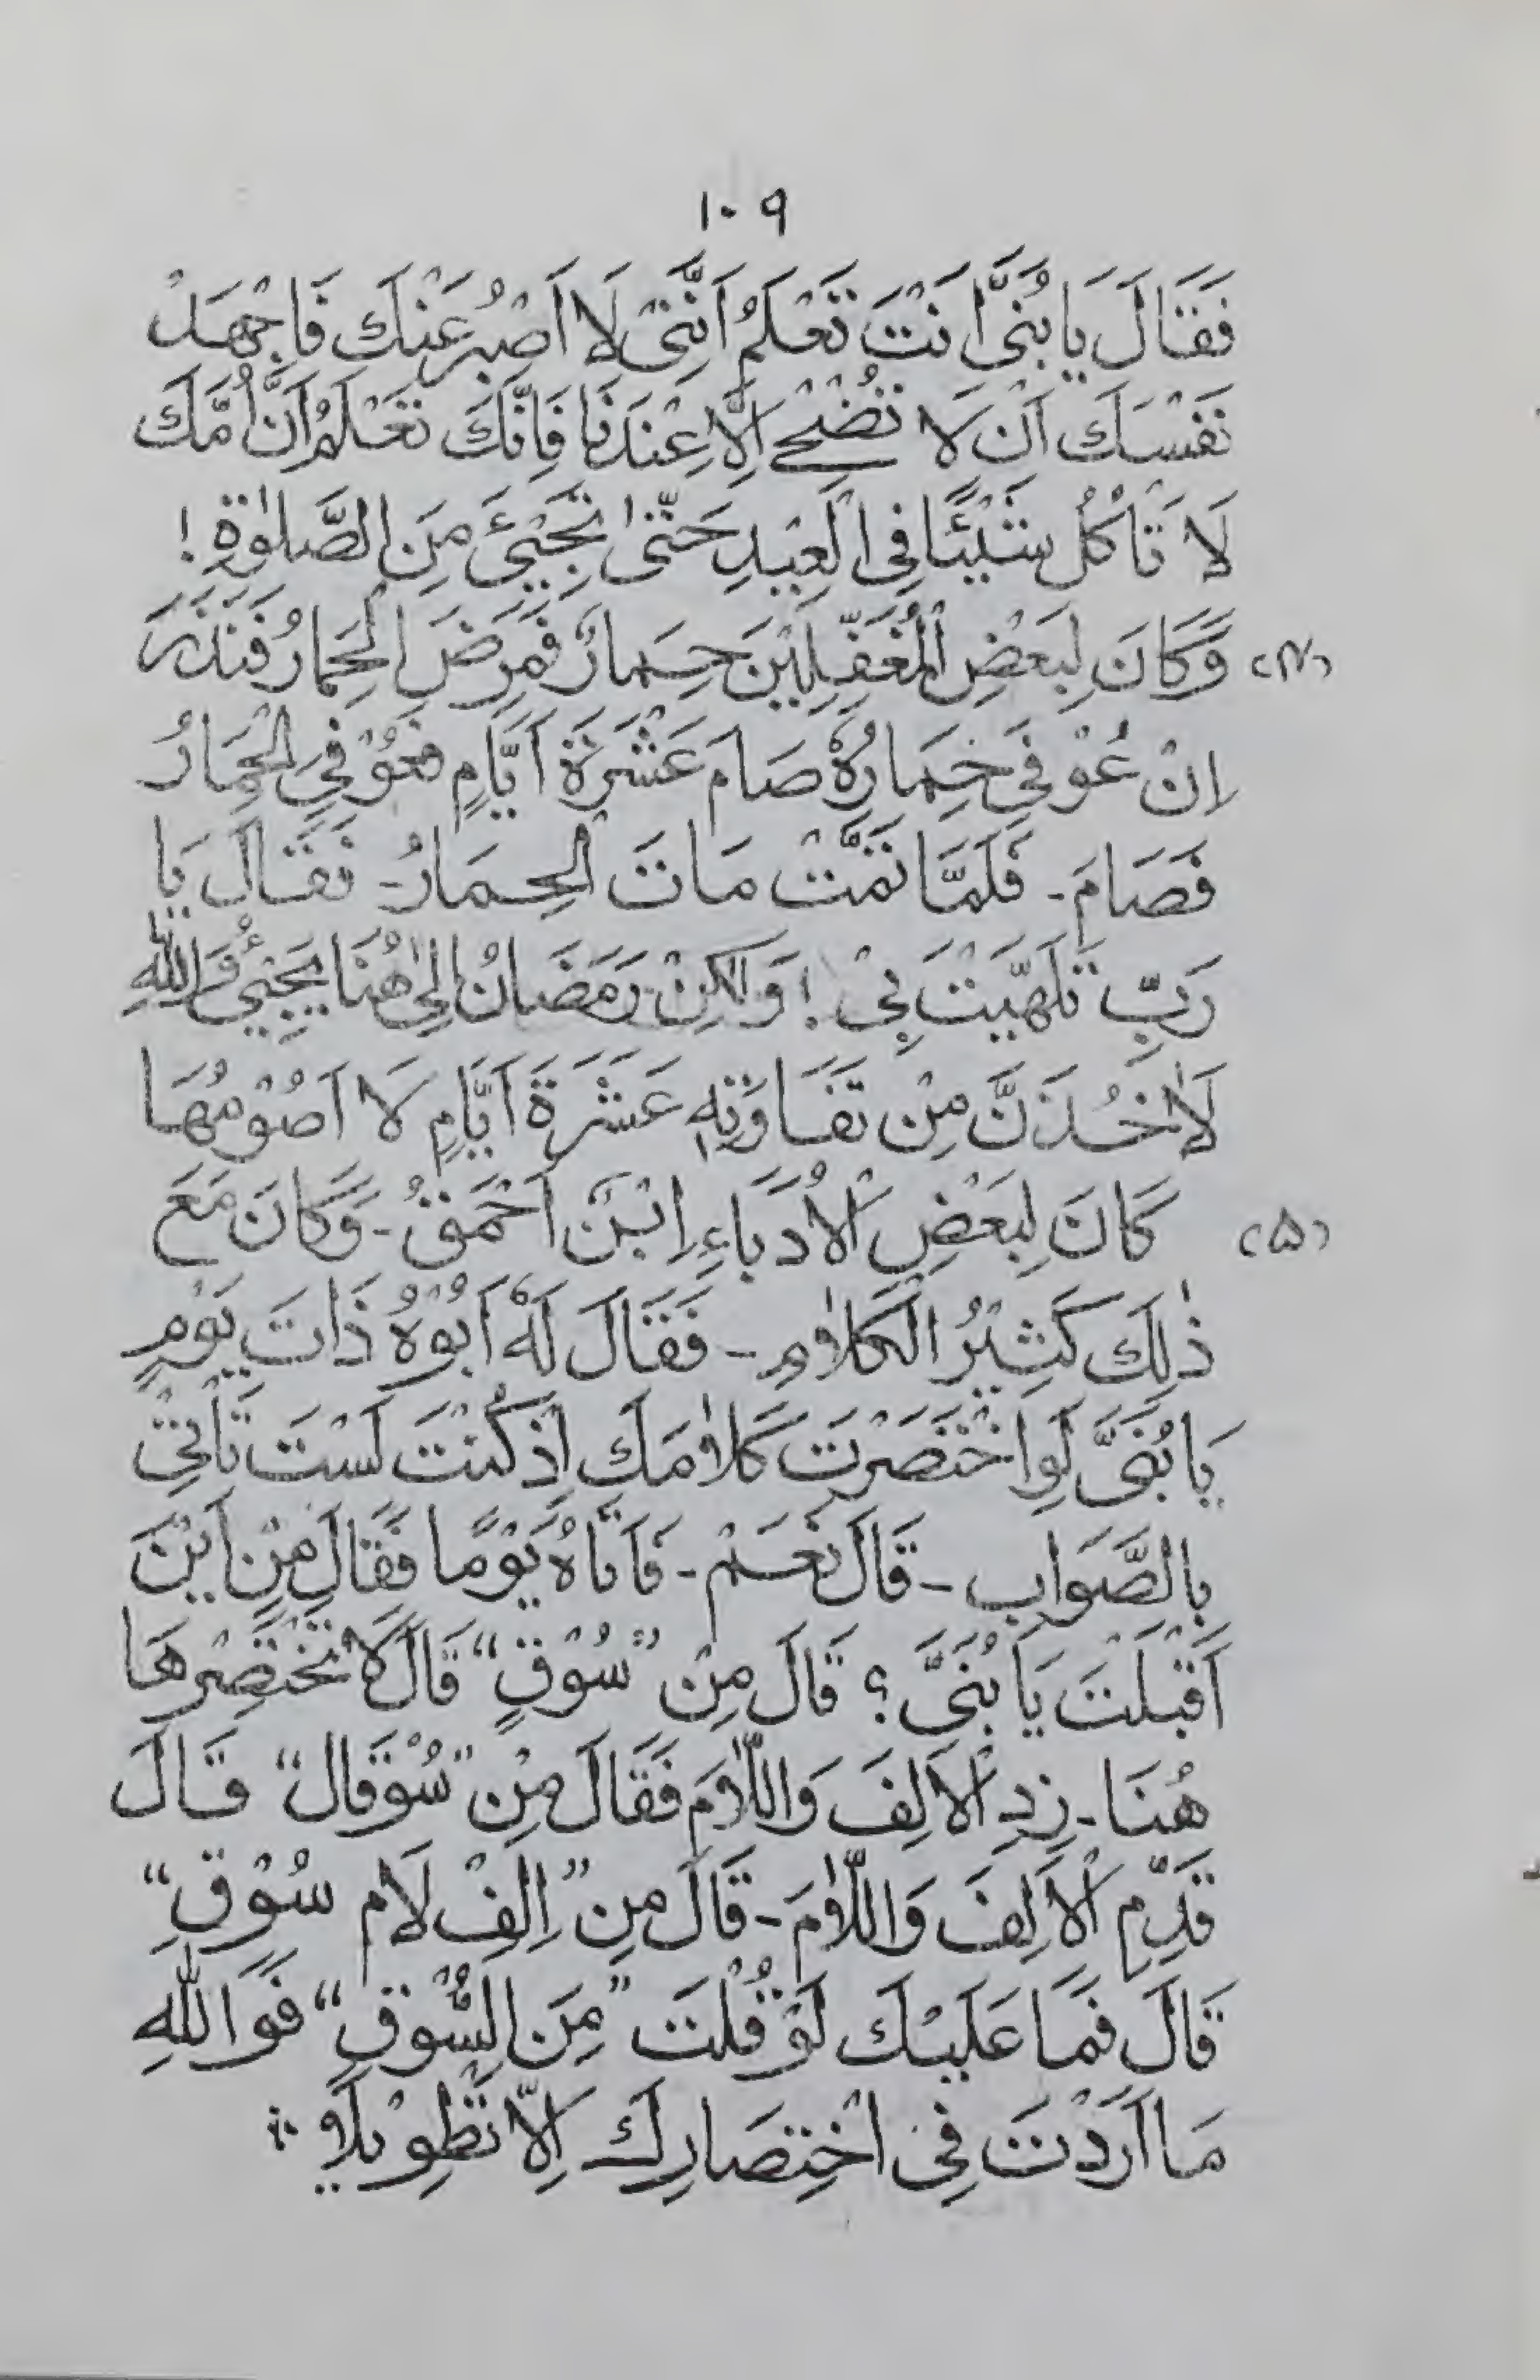 ١٠٩
فَقَالَ يَا بُنَيَّ اَنْتَ تَعْلَمُ اَنَّنِيْ لَا اَصْبِرُ عَنْكَ فَاجْهَدْ
نَفْسَكَ اَنْ لَا تُضْحِيَ اِلَّا عِنْدَنَا فَاِنَّكَ تَعْلَمُ اَنَّ اُمَّكَ
لَا تَاْكُلُ شَيْئًا فِي الْعِيْدِ حَتّٰى تَجِيْئَ مِنَ الصَّلٰوةِ !
(۴) وَكَانَ لِبَعْضِ الْمُغَفَّلِيْنَ حِمَارٌ فَمَرِضَ الْحِمَارُ فَنَذَرَ
اِنْ عُوْفِيَ حِمَارُهٗ صَامَ عَشْرَةَ اَيَّامٍ فَعُوْفِيَ الْحِمَارُ
فَصَامَ - فَلَمَّا تَمَّتْ مَاتَ الْحِمَارُ - فَقَالَ يَا
رَبِّ تَلَهَّيْتَ بِيْ ! وَلٰكِنْ رَمَضَانُ اِلٰى هُنَا يَجِيْئُ وَاللّٰهِ
لَاٰخُذَنَّ مِنْ نَقَاوَتِهٖ عَشْرَةَ اَيَّامٍ لَا اَصُوْمُهَا
(۵) كَانَ لِبَعْضِ الْاُدَبَاءِ اِبْنٌ اَحْمَقُ - وَكَانَ مَعَ
ذٰلِكَ كَثِيْرُ الْكَلَامِ - فَقَالَ لَهٗ اَبُوْهُ ذَاتَ يَوْمٍ
يَا بُنَيَّ لَوِ اخْتَصَرْتَ كَلَامَكَ اِذْ كُنْتَ لَسْتَ تَاْتِيْ
بِالصَّوَابِ - قَالَ نَعَمْ - فَاَتَاهُ يَوْمًا فَقَالَ مِنْ اَيْنَ
اَقْبَلْتَ يَا بُنَيَّ ؟ قَالَ مِنْ "سُوْقٍ" قَالَ لَا تَخْتَصِرْهَا
هُنَا - زِدِ الْاَلِفَ وَاللَّامَ فَقَالَ مِنْ "سُوْقَال" قَالَ
قَدِّمِ الْاَلِفَ وَاللَّامَ - قَالَ مِنْ "اِلِفْ لَام سُوْقِ"
قَالَ فَمَا عَلَيْكَ لَوْ قُلْتَ "مِنَ السُّوْقِ" فَوَاللّٰهِ
مَا اَرَدْتَ فِي اخْتِصَارِكَ اِلَّا تَطْوِيْلًا